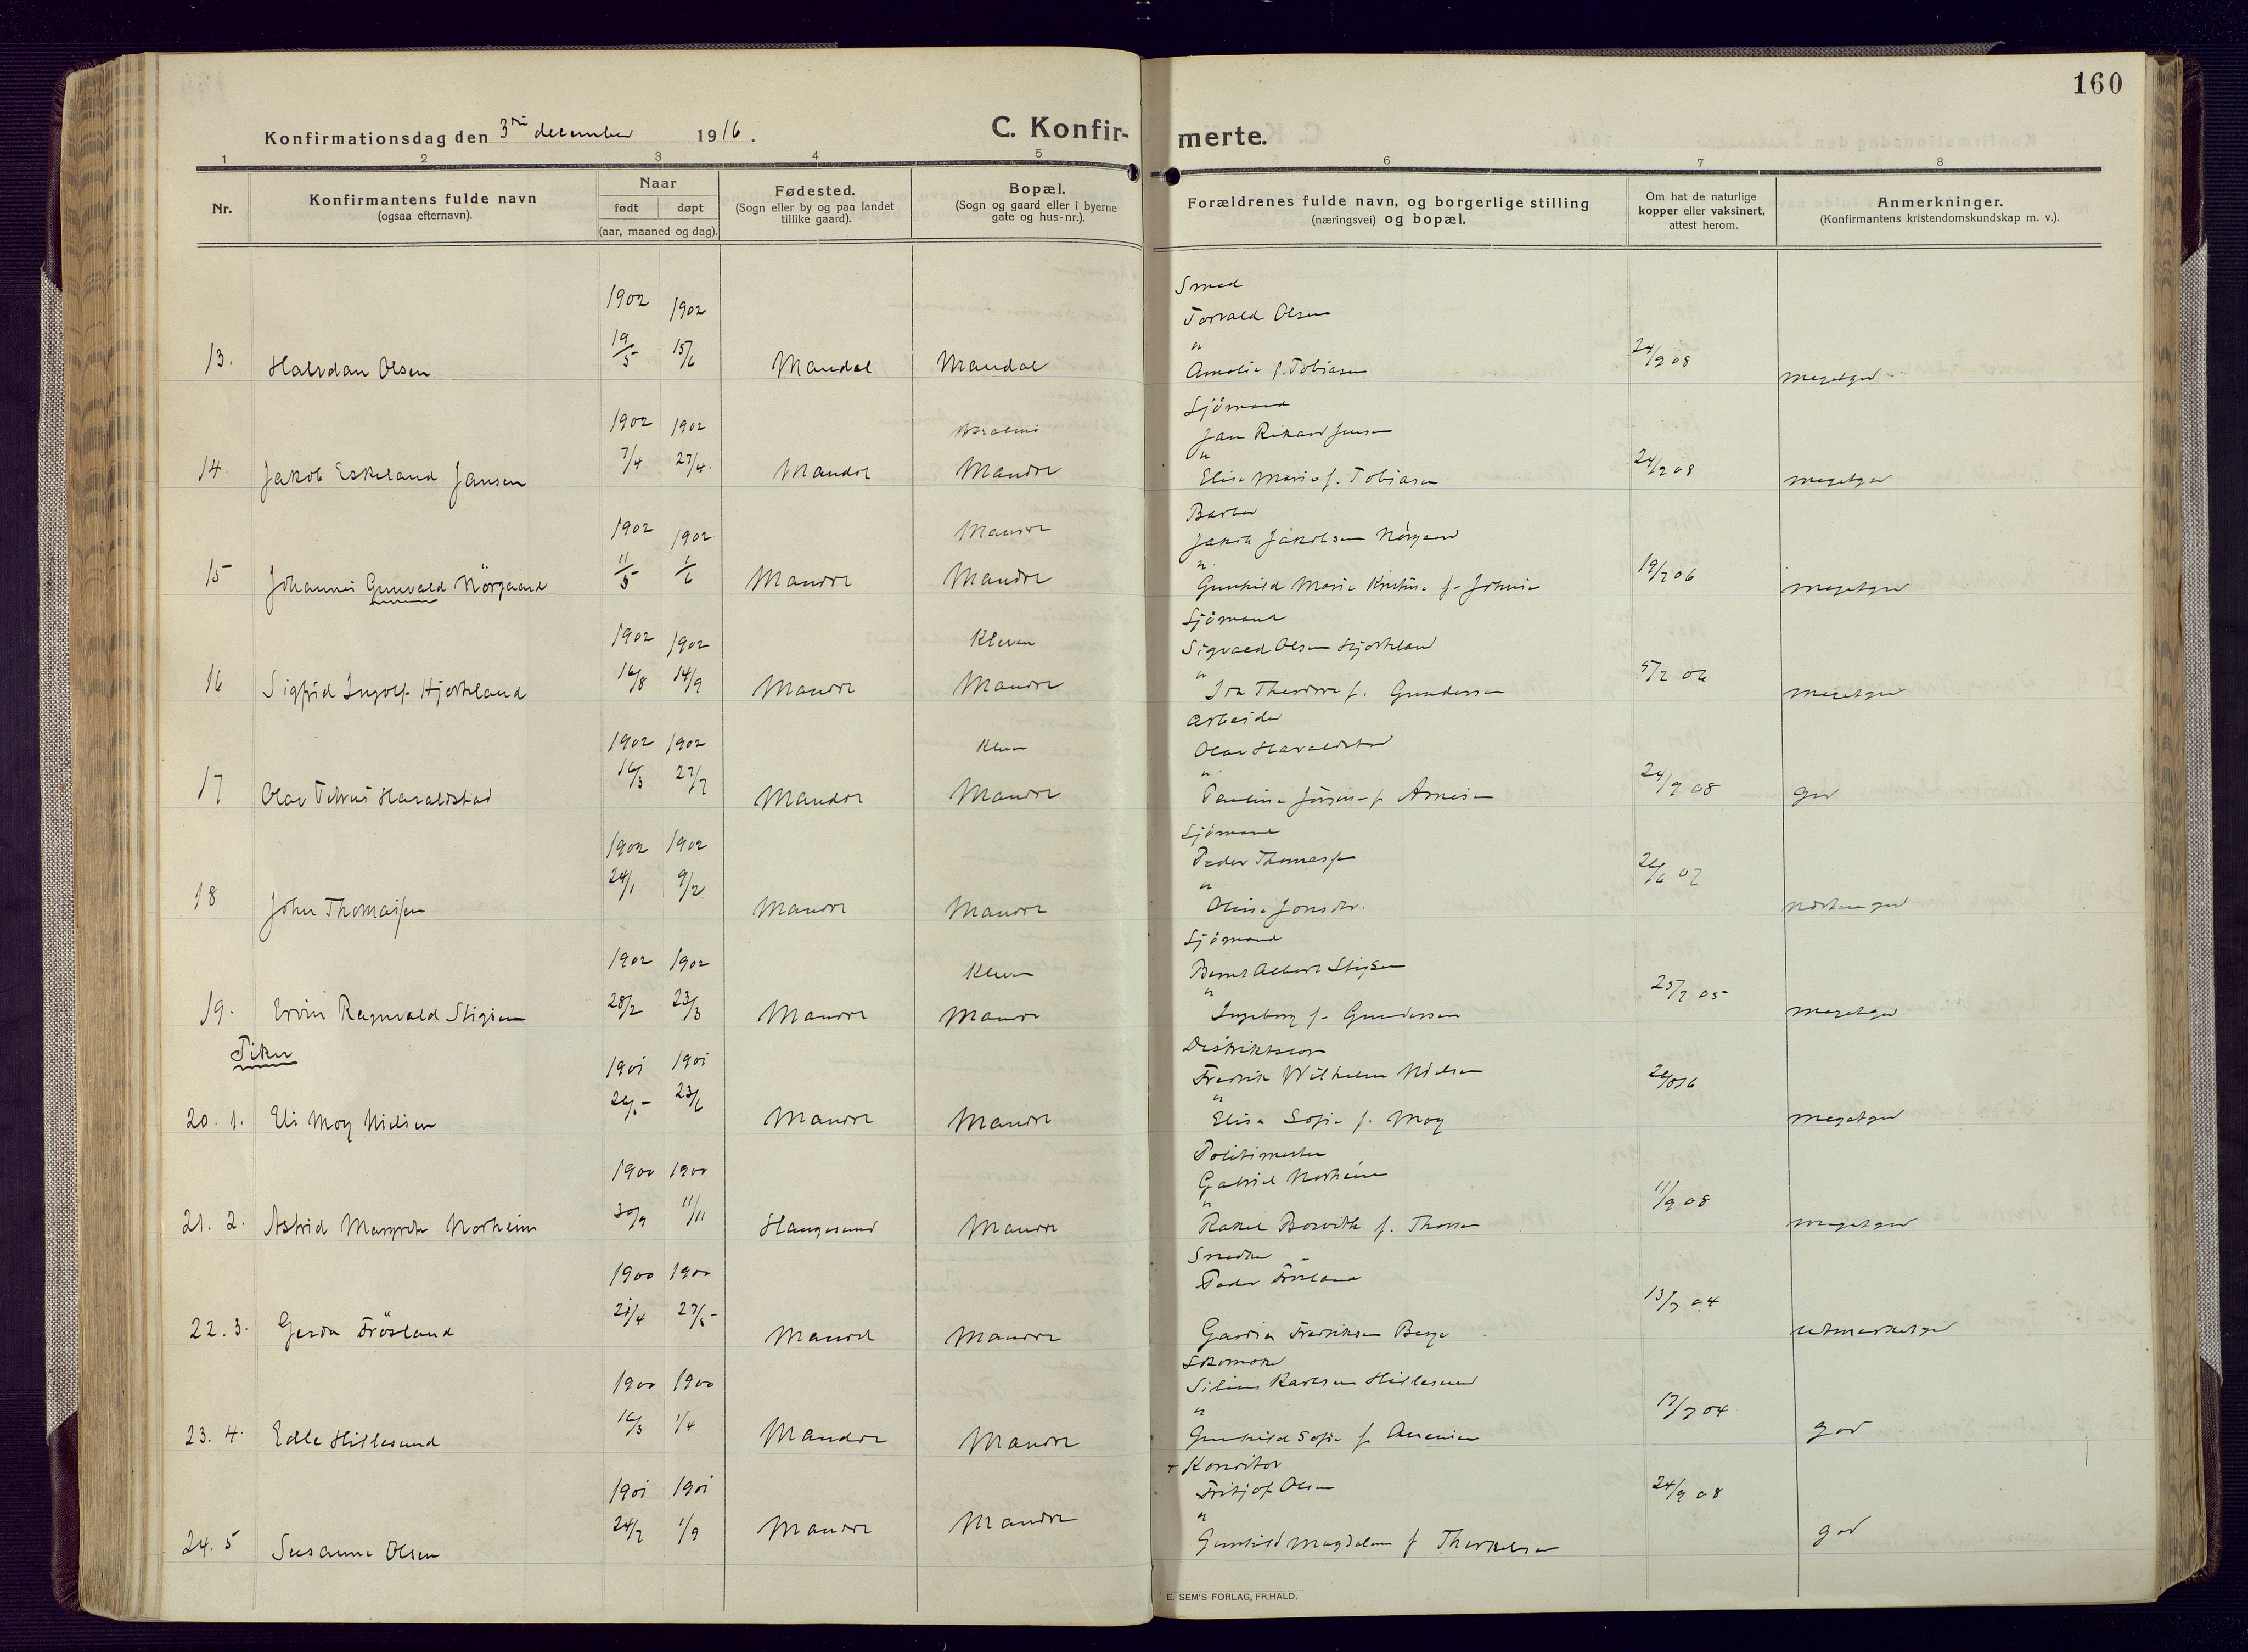 160
Konfirmationsdag den 3die december 1916. C. Konfir- merte.
1 2 3 4 5 6 7 8
Nr.
Konfirmantens fulde navn
(ogsaa efternavn).
Naar
født døpt
(aar, maaned og dag).
Fødested.
(Sogn eller by og paa landet
tillike gaard).
Bopæl.
(Sogn og gaard eller i byerne
gate og hus-nr.).
Forældrenes fulde navn, og borgerlige stilling
(næringsvei) og bopæl.
Om hat de naturlige
kopper eller vaksinert,
attest herom.
Anmerkninger.
(Konfirmantens kristendomskundskap m. v.).
Smed
1902 1902 Torvald Olsen
19/5 15/6 "
13. Halvdan Olsen Mandal Mandal Amalie f. Tobiasen 24/9 08 megetgod
Sjömand
1902 1902 Jan Rikard Jensen
7/4 27/4 "
14. Jakob Eskeland Jansen Mandal Mandal Elise Marie f. Tobiasen 24/9 08 megetgod
Barber
1902 1902 Mandal Jakob Jakobsen Nørgaard
11/5 1/6 "
15 Johannes Gunvald Nörgaard Mandal Mandal Gunhild Marie Kristine f. 19/7 06 megetgod
Sjömand
1902 1902 Kleven Sigvald Olsen Hjorteland
16/8 14/9 "
16 Sigfrid Ingolf Hjorteland Mandal Mandal Ida Theodora f. Gundersen 5/7 06 megetgod
Arbeider
1902 1902 Kleven Olav Haraldstad
16/3 27/7 "
17 Olav Petrus Haraldstad Mandal Mandal Pauline f. Arnesen 24/9 08 god
Sjömand
1902 1902 Peder Thomassen
24/1 9/2 "
18 John Thomassen Mandal Mandal Oline Jonsdtr. 26/6 07 næsten god
Sjömand
1902 1902 Kleven Bernt Albert Stigsen
28/2 23/3 "
19. Ervin Ragnvald Stigsen Mandal Mandal Ingeborg f. Gundersen 25/7 05 megetgod
Piker
Distriktslæge
1901 1901 Fredrik Wilhelm Nielsen
23/6 "
20. 1. Eli Moy Nielsen Mandal Mandal Elisa Sofie f. Moy megetgod
Politimester
1900 1900 Gabriel Norheim
30/9 11/11 "
21. 2. Astrid Margrete Norheim Haugesund Mandal Rakel Borvitte f. 11/9 08 megetgod
Snedker
1900 1900 Peder Frösland
21/4 27/5
22. 3. Gerda Frösland Mandal Mandal Fredriksen Berge 13/7 04 utmerketgod
Skomaker
1900 1900 Karlsen Hillesund
16/3 1/4 "
23. 4. Edle Hillesund Mandal Mandal Gunhild Sofie f. 17/7 04 god
+ Konditor
1901 1901 Fritjof Olsen
24/7 1/9 "
24. 5 Susanne Olsen Mandal Mandal Gunhild Magdalene f Therkelsen 24/9 08 god
E. SEM'S FORLAG, FR.HALD.